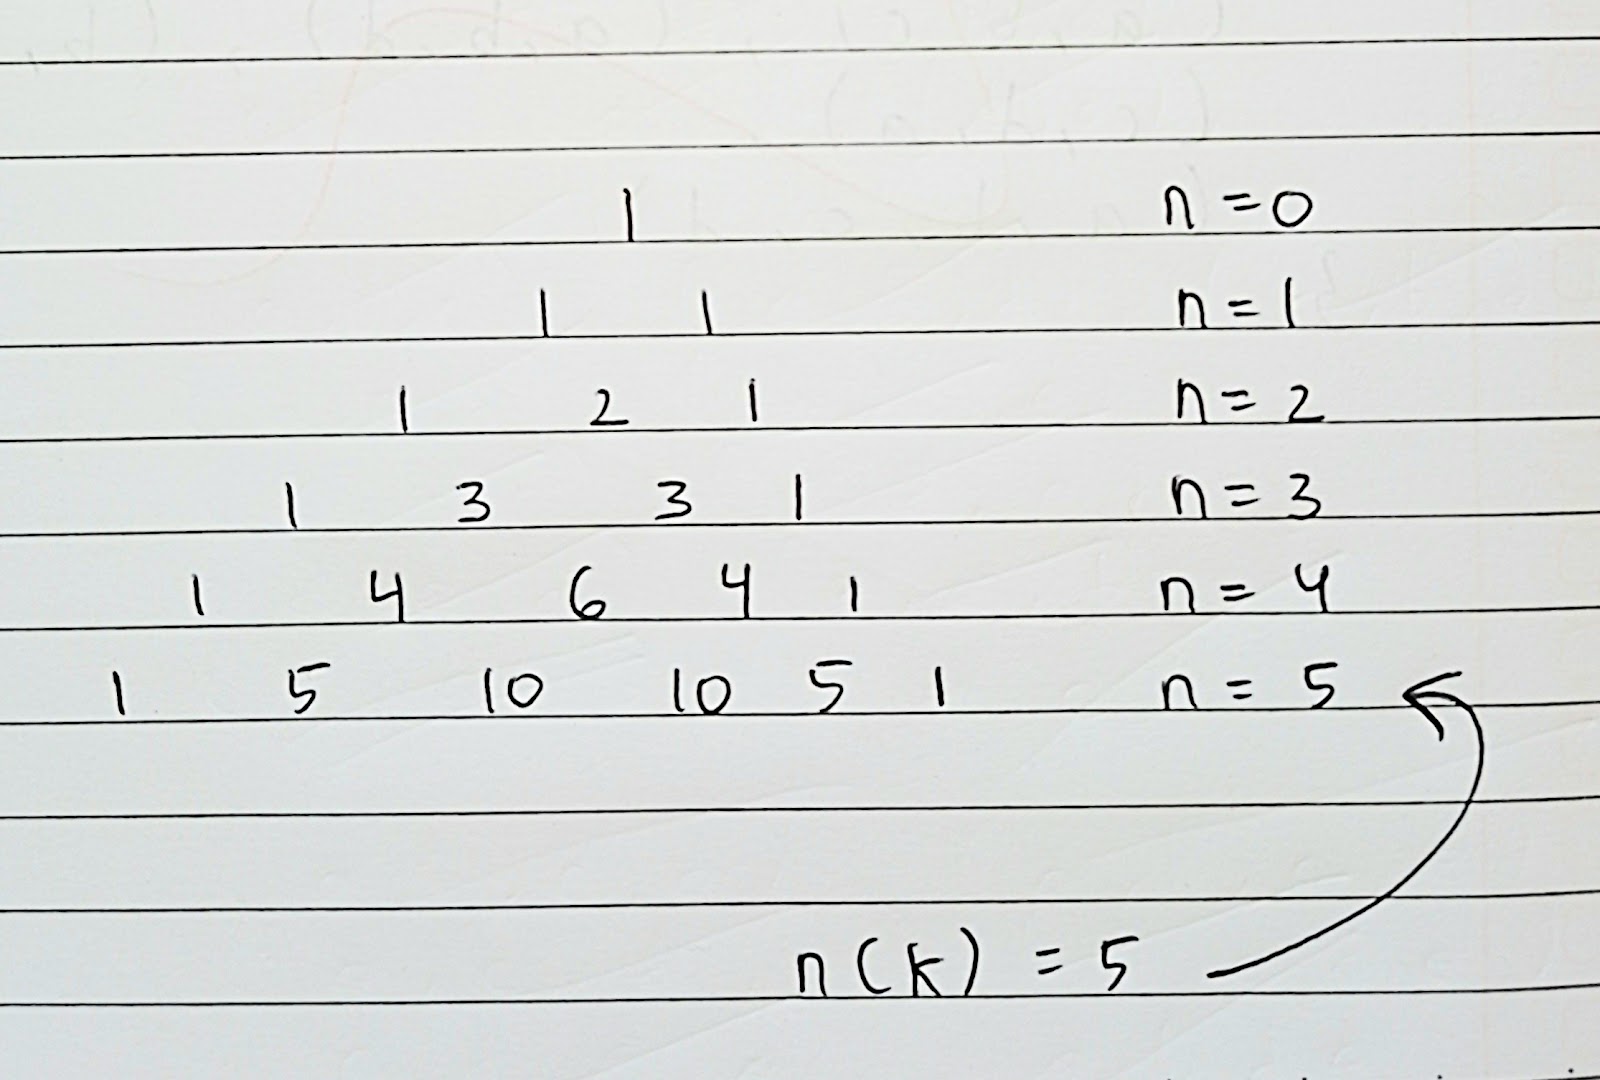 1 n = 0
1 1 n = 1
1 2 1 n = 2
1 3 3 1 n = 3
1 4 6 4 1 n = 4
1 5 10 10 5 1 n = 5
n(k) = 5